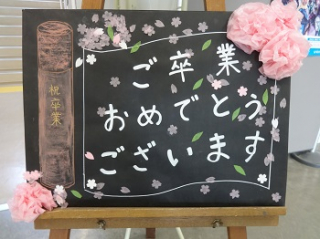 祝卒業
ご卒業
おめでとう
ございます